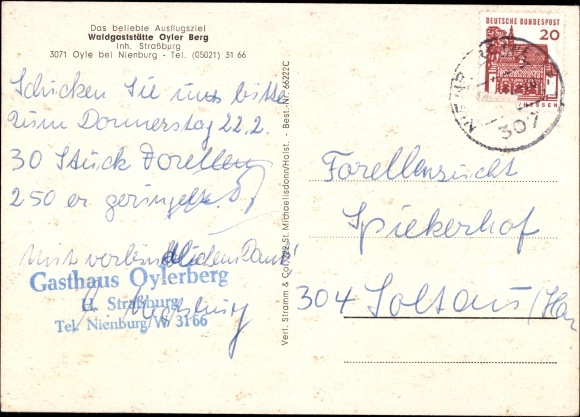 Das beliebte Ausflugsziel
Waldgaststätte Oyler Berg
Inh. Straßburg
3071 Oyle bei Nienburg - Tel. (05021) 31 66
Schicken Sie uns bitte
zum Donnerstag 22.2.
30 Stück Forellen
250 er
Mit verbindlichem Dank
Gasthaus Oylerberg
H. Straßburg
Tel. Nienburg/W. 3166
Verl. Stramm & Co., 222 St. Michaelisdonn/Holst. - Best.-Nr. 66222C
DEUTSCHE BUNDESPOST
20
307
Forellenzucht
Spiekerhof
304 Soltau (Han